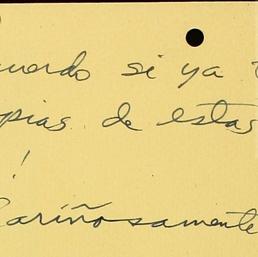 uerdo si ya
pias de estas
!
Cariñosamente